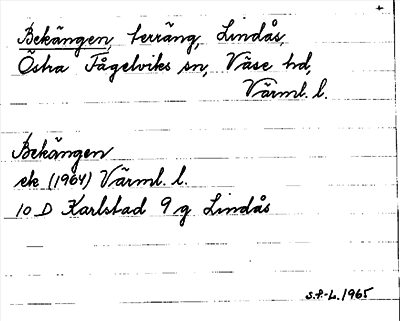 Bekängen, terräng, Lindås,
Östra Fågelviks sn, Väse hd,
Värml. l.
Bekängen
ek (1964) Värml. l.
10 D Karlstad 9 g Lindås
S.P.-L. 1965